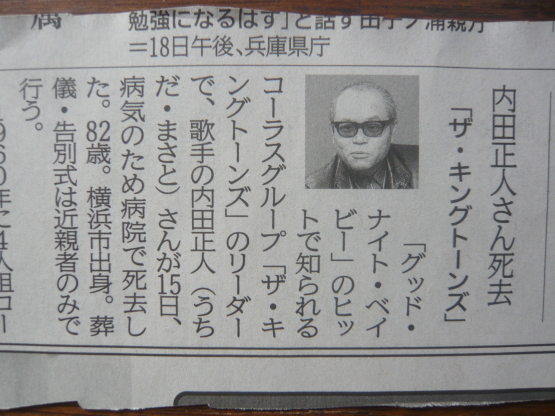 勉強になるはず」と話す田子ノ浦親方
＝18日午後、兵庫県庁
内田正人さん死去
「ザ・キングトーンズ」
「グッド・
ナイト・ベイ
ビー」のヒッ
トで知られる
コーラスグループ「ザ・キ
ングトーンズ」のリーダー
で、歌手の内田正人（うち
だ・まさと）さんが15日、
病気のため病院で死去し
た。82歳。横浜市出身。葬
儀・告別式は近親者のみで
行う。
960年に4人組コー